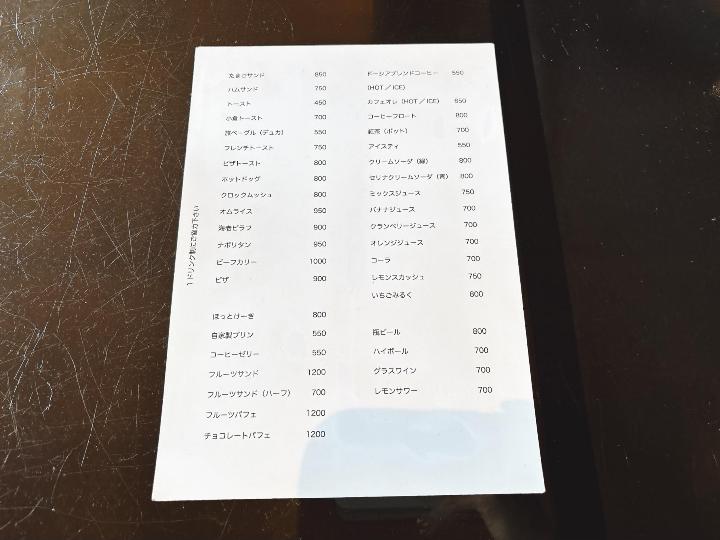 たまごサンド 850
ハムサンド 750
トースト 450
小倉トースト 700
旅ベーグル（デュカ） 550
フレンチトースト 750
ピザトースト 800
ホットドッグ 800
クロックムッシュ 800
オムライス 950
海老ピラフ 900
ナポリタン 950
ビーフカリー 1000
ピザ 900
ほっとけーき 800
自家製プリン 550
コーヒーゼリー 550
フルーツサンド 1200
フルーツサンド（ハーフ） 700
フルーツパフェ 1200
チョコレートパフェ 1200
1ドリンク制にご協力下さい
ドーシアブレンドコーヒー 550
(HOT／ICE)
カフェオレ（HOT／ICE） 650
コーヒーフロート 800
紅茶（ポット） 700
アイスティ 550
クリームソーダ（緑） 800
セリナクリームソーダ（青） 800
ミックスジュース 750
バナナジュース 700
クランベリージュース 700
オレンジジュース 700
コーラ 700
レモンスカッシュ 750
いちごみるく 800
瓶ビール 800
ハイボール 700
グラスワイン 700
レモンサワー 700